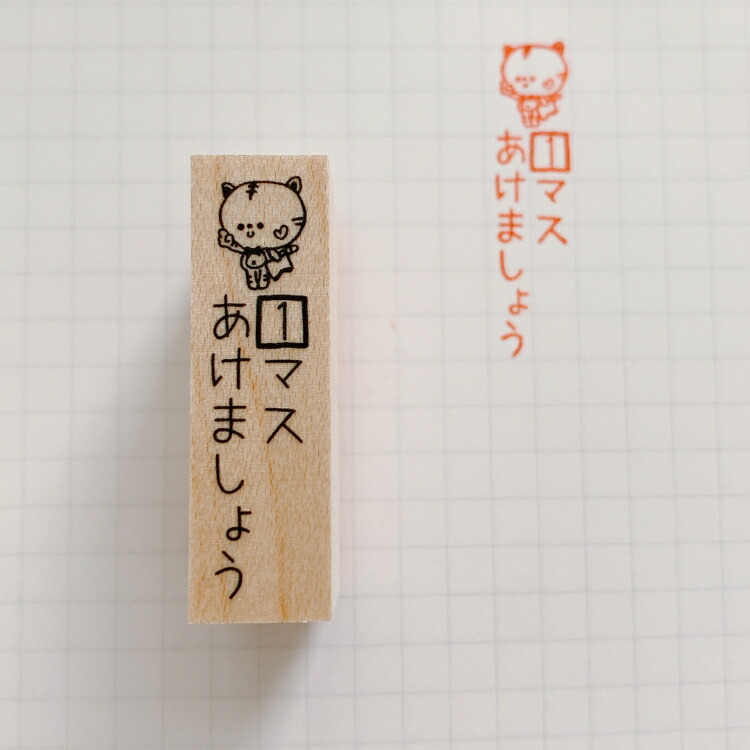 1マス
あけましょう
1マス
あけましょう